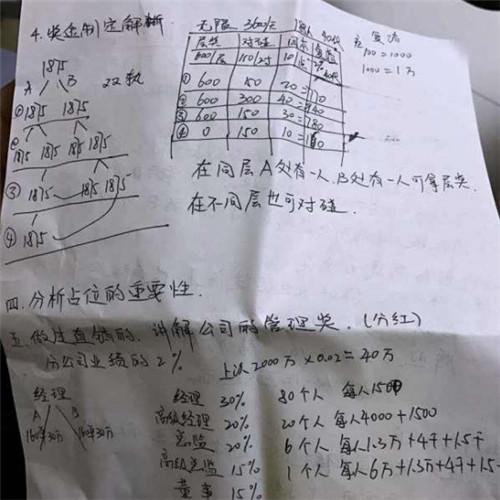 4.奖金制度解析
1875
A B 22轨
① 1875 1875
② 1875 1875 1875 1875
③ 1875 1875 1875
④ 1875
无限 3600/天
层奖 对碰
600/层 150/对
① 600 150 20
② 600 300 40
③ 600 150 30
④ 0 150 10
复消
100=1000
1000=1万
在同层A处有一人,B处有一人可拿层奖.
在不同层也可对碰
四.分析占位的重要性.
五.做过直销的,讲解公司的管理奖.(分红)
分公司业绩的2% 2000万×0.02=40万
经理
A B
经理 30% 80个人 每人1500
高级经理 20% 20个人 每人4000+1500
总监 20% 6个人 每人1.3万+4千+1.5千
高级总监 15% 1个人 每人6万+1.3万+4千+1.5
董事 15%